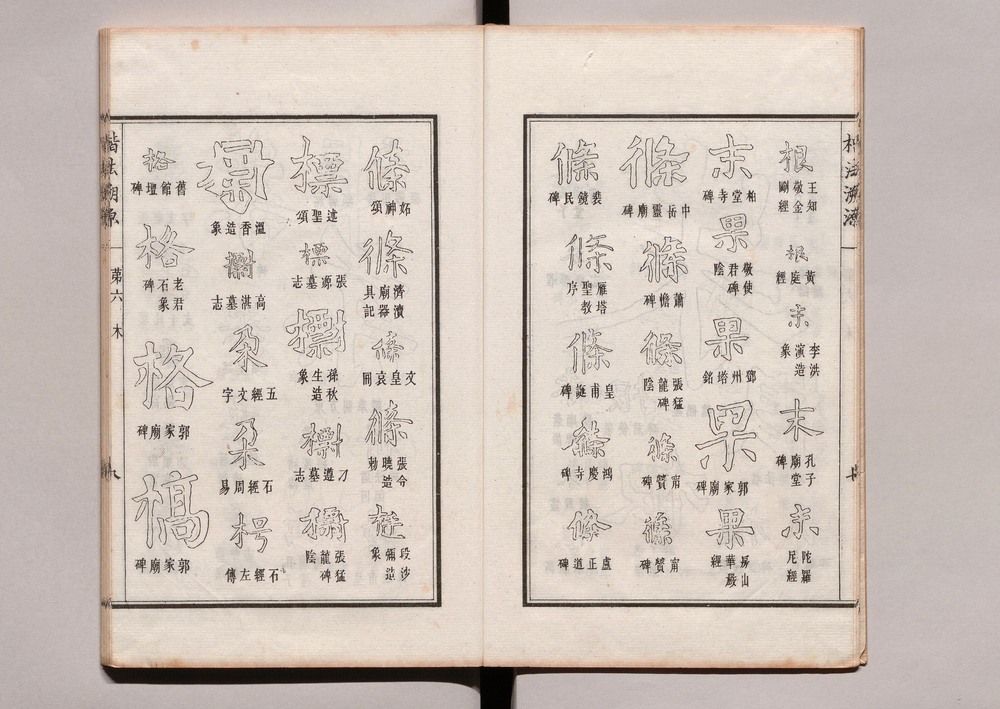 楷法溯源
根
王知敬金剛經
根
黃庭經
末
李洪演造象
末
孔子廟堂碑
末
陀羅尼經
末
柏堂寺碑
果
敬使君碑陰
果
鄧州塔銘
果
郭家廟碑
果
條
中岳靈廟碑
條
蕭憺碑
條
張猛龍碑陰
條
甯贙碑
條
甯贙碑
條
裴鏡民碑
條
雁塔聖教序
條
皇甫誕碑
條
鴻慶寺碑
條
盧正道碑
條
姤神頌
條
濟瀆廟器具記
條
文皇哀冊
條
張令曉造勅
段沙彌造象
標
述聖頌
標
張源墓志
孫秋生造象
刁遵墓志
張猛龍碑陰
溫香造象
高湛墓志
朵
五經文字
朵
石經周易
枵
石經左傳
格
舊館壇碑
格
老君石象碑
格
郭家廟碑
槁
郭家廟碑
楷法溯源
第六
木